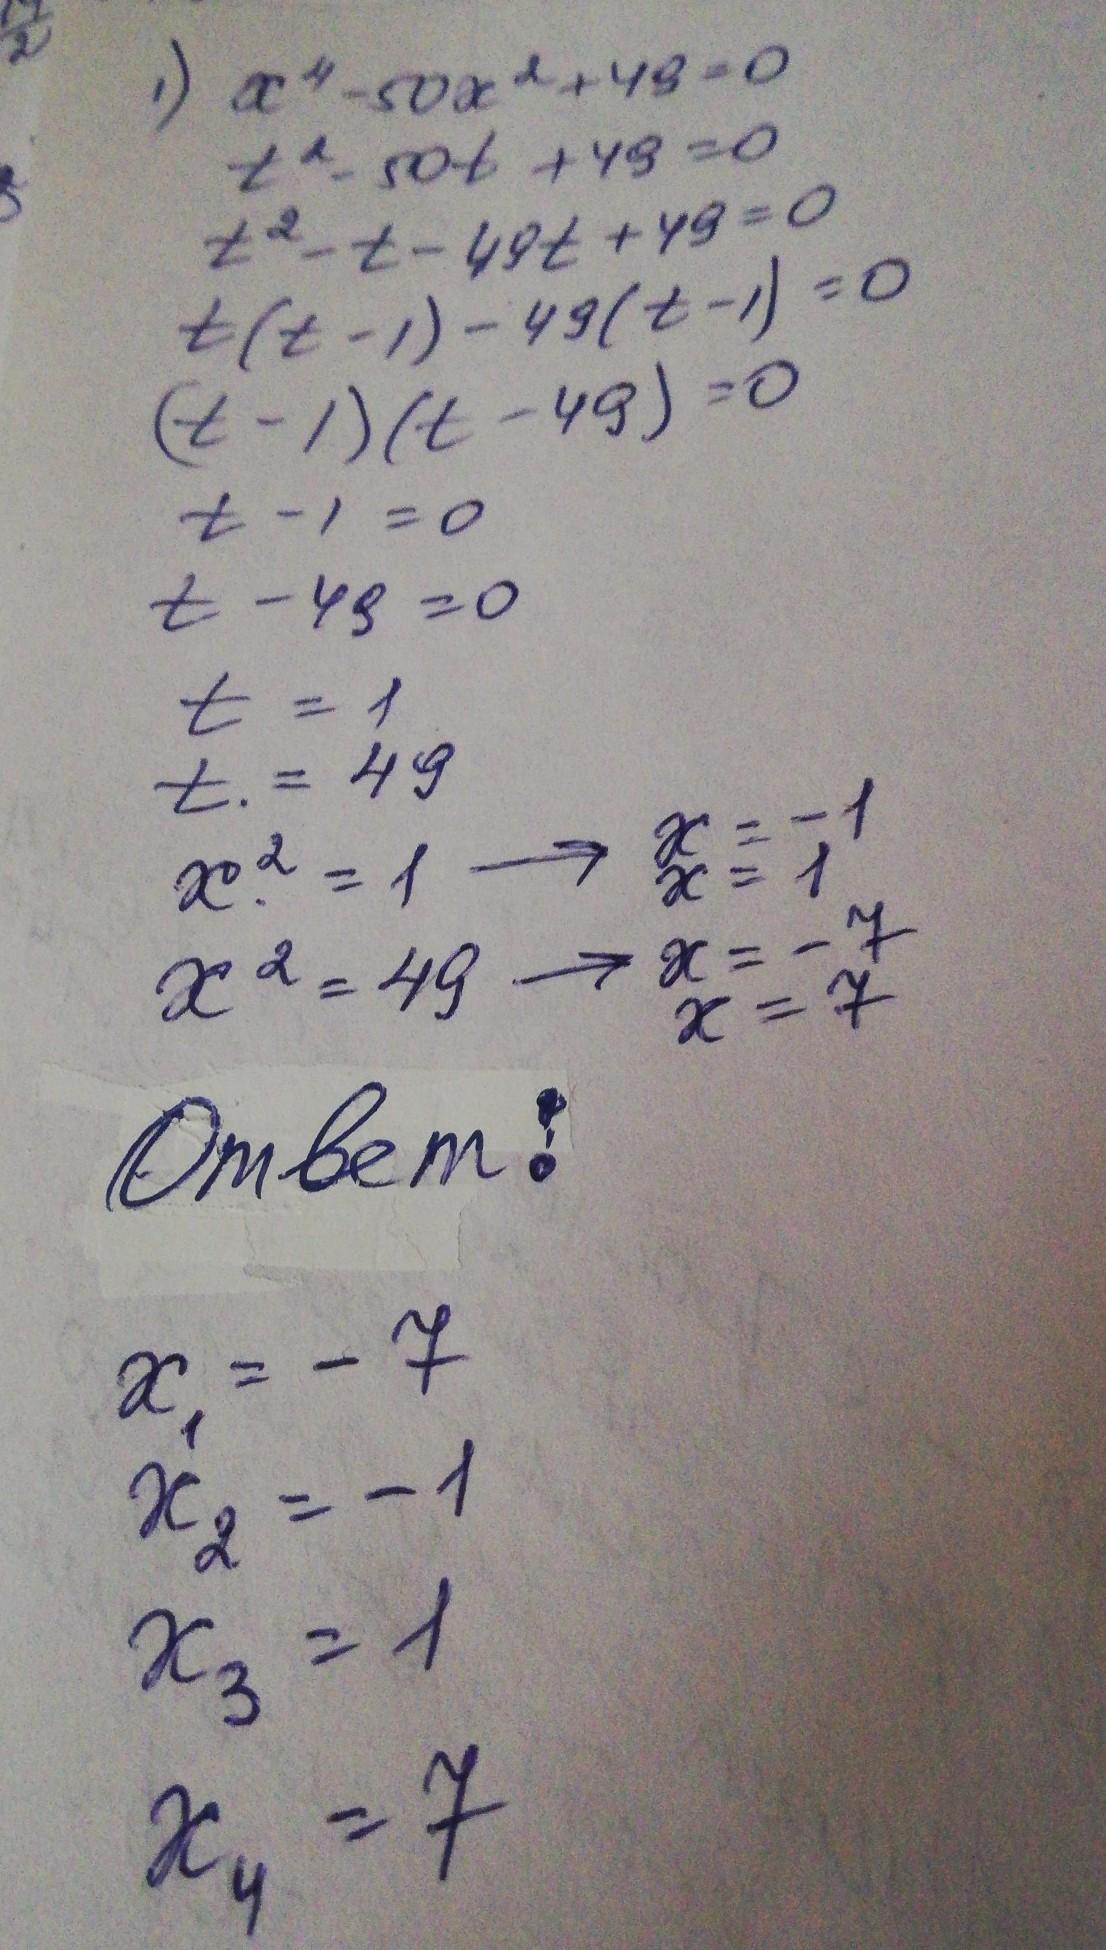 1) x⁴-50x²+49=0
t²-50t+49=0
t²-t-49t+49=0
t(t-1)-49(t-1)=0
(t-1)(t-49)=0
t-1=0
t-49=0
t=1
t.=49
x²=1 → x=-1
x=1
x²=49 → x=-7
x=7
Ответ:
x₁=-7
x₂=-1
x₃=1
x₄=7